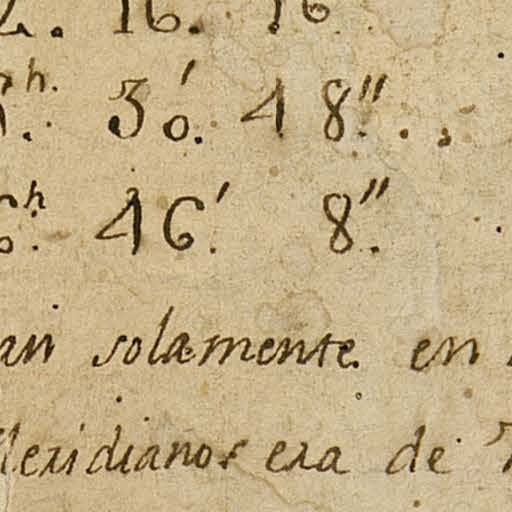 2. 16. 16
h. 30.' 48." . .
h 46.' 8."
an solamente. en
Meridianos era de